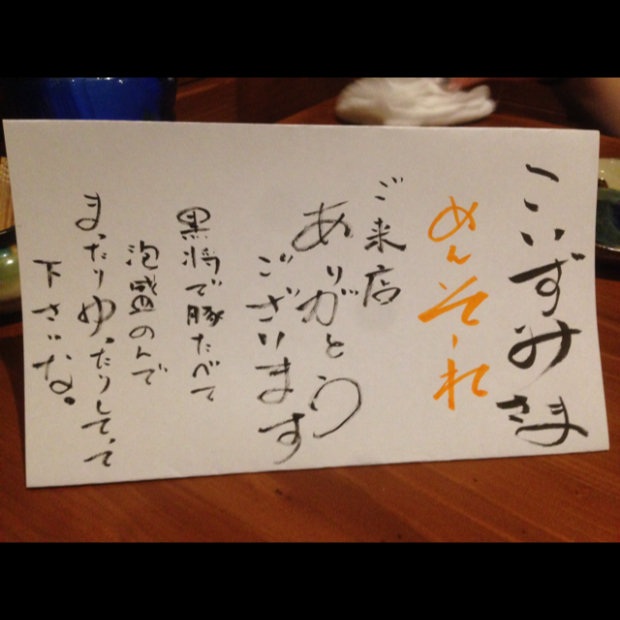 こいずみさま
めんそーれ
ご来店
ありがとう
ございます
黒将で豚たべて
泡盛のんで
まったりゆったりしてって
下さいな。